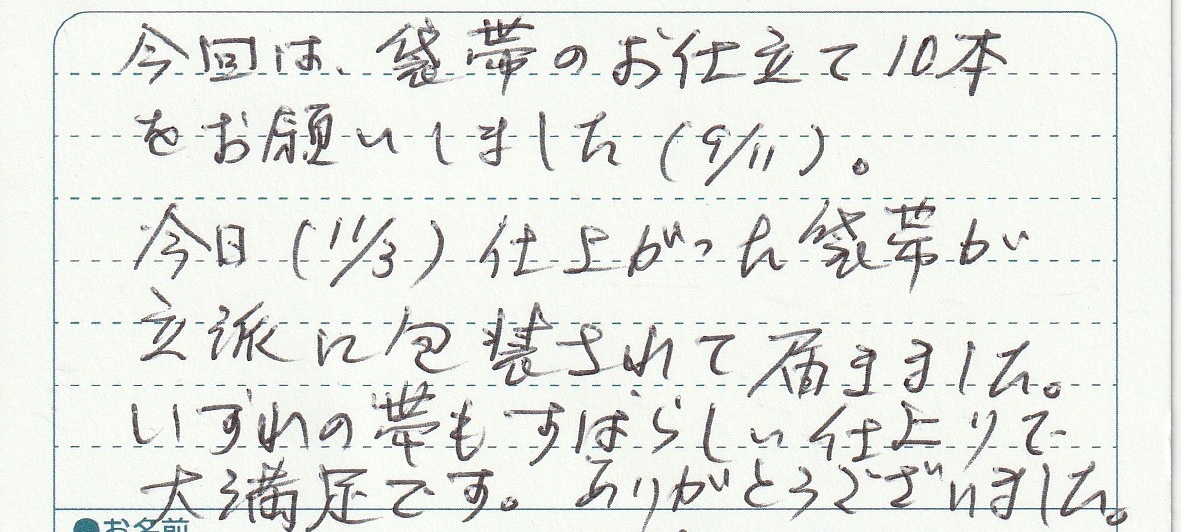 今回は、袋帯のお仕立て10本
をお願いしました(9/11)。
今日(11/3)仕上がった袋帯が
立派に包装されて届きました。
いずれの帯もすばらしい仕上りで
大満足です。ありがとうございました。
●お名前